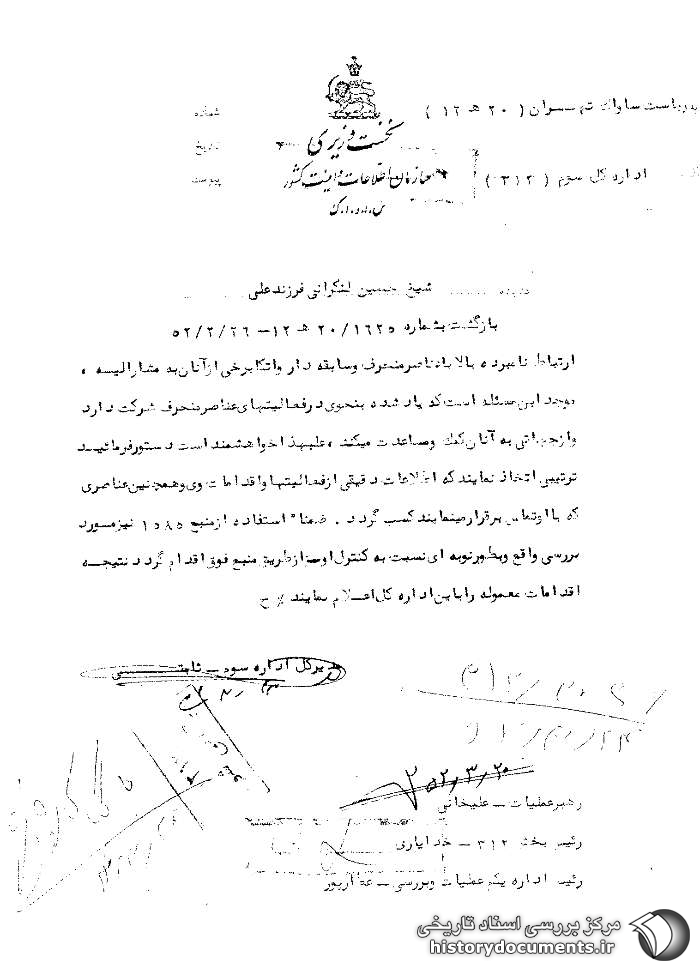 به ریاست ساواک تهران ( ۲۰ هـ ۱۲ )
شماره
نخست وزیری
تاریخ
سازمان اطلاعات و امنیت کشور
اداره کل سوم ( ۳۱۲ )
پیوست
س.ا.و.ا.ک
درباره شیخ حسین لنکرانی فرزند علی
بازگشت بشماره ۱۶۲۵/ ۲۰ هـ ۱۲ – ۵۲/۲/۲۶
ارتباط نامبرده بالا با عناصر منحرف و سابقه دار و اتکا برخی از آنان به مشارالیه ،
موجد این مسئله است که یاد شده بنحوی در فعالیتهای عناصر منحرف شرکت دارد
و از جهاتی به آنان کمک و مساعدت میکند ، علیهذا خواهشمند است دستور فرمائید
ترتیبی اتخاذ نمایند که اطلاعات دقیقی از فعالیتها و اقدامات وی و همچنین عناصری
که با او تماس برقرار مینمایند کسب گردد . ضمناً استفاده از منبع ۱۰۸۵ نیز مورد
بررسی واقع و بطور نوبه ای نسبت به کنترل او از طریق منبع فوق اقدام گردد نتیجه
اقدامات معموله را باین اداره کل اعلام نمایند ٪ ح
مدیر کل اداره سوم – ثابتی
۵۲/۳/۲۰
رهبر عملیات – علیخانی
رئیس بخش ۳۱۲ – خدایاری
رئیس اداره یکم عملیات و بررسی – عطارپور
مرکز بررسی اسناد تاریخی
historydocuments.ir